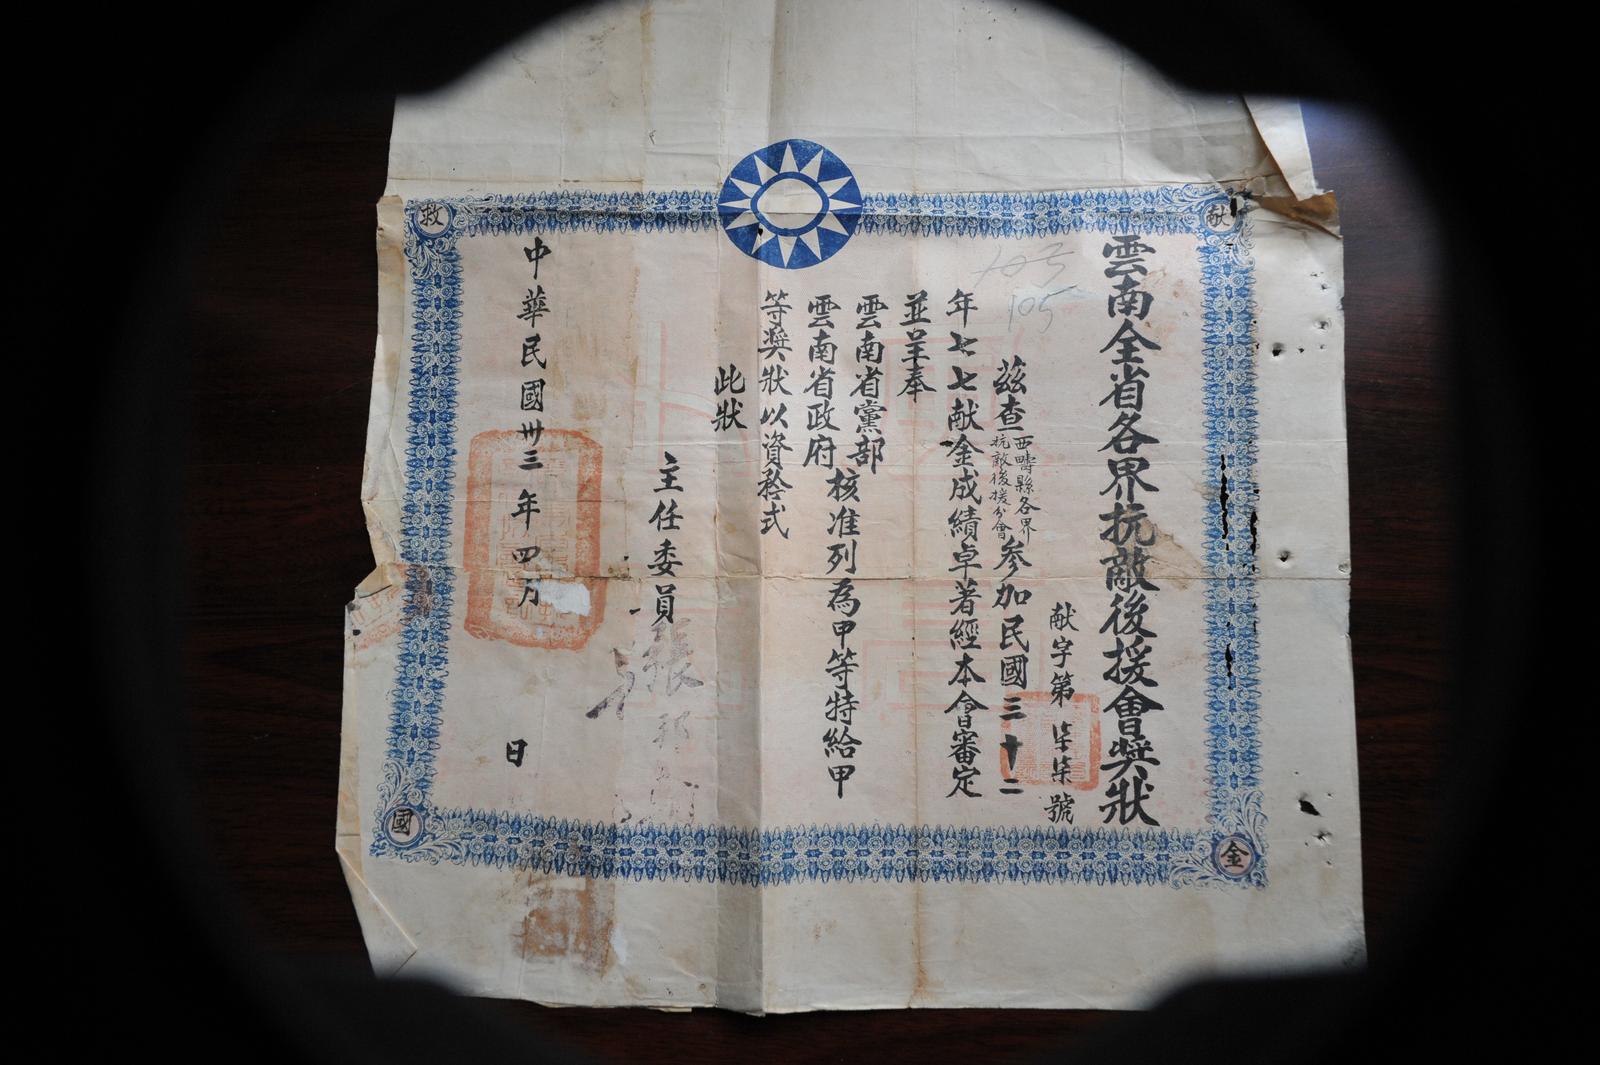 雲南全省各界抗敵後援會獎狀
献字第柒柒號
茲查西疇縣各界抗敵後援分會參加民國三十二
年七七献金成績卓著經本會審定
並呈奉
雲南省黨部
雲南省政府
核准列為甲等特給甲
等獎狀以資矜式
此狀
主任委員
張邦
中華民國卅三年四月 日
献
金
救
國
105